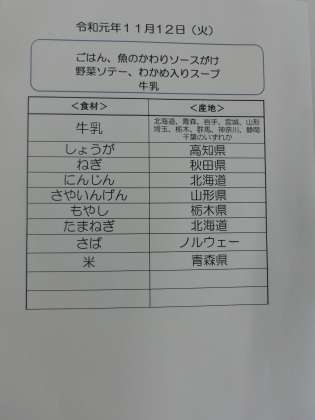 令和元年１１月１２日（火）
ごはん、魚のかわりソースがけ
野菜ソテー、わかめ入りスープ
牛乳
＜食材＞ ＜産地＞
牛乳 北海道、青森、岩手、宮城、山形
埼玉、栃木、群馬、神奈川、静岡
千葉のいずれか
しょうが 高知県
ねぎ 秋田県
にんじん 北海道
さやいんげん 山形県
もやし 栃木県
たまねぎ 北海道
さば ノルウェー
米 青森県